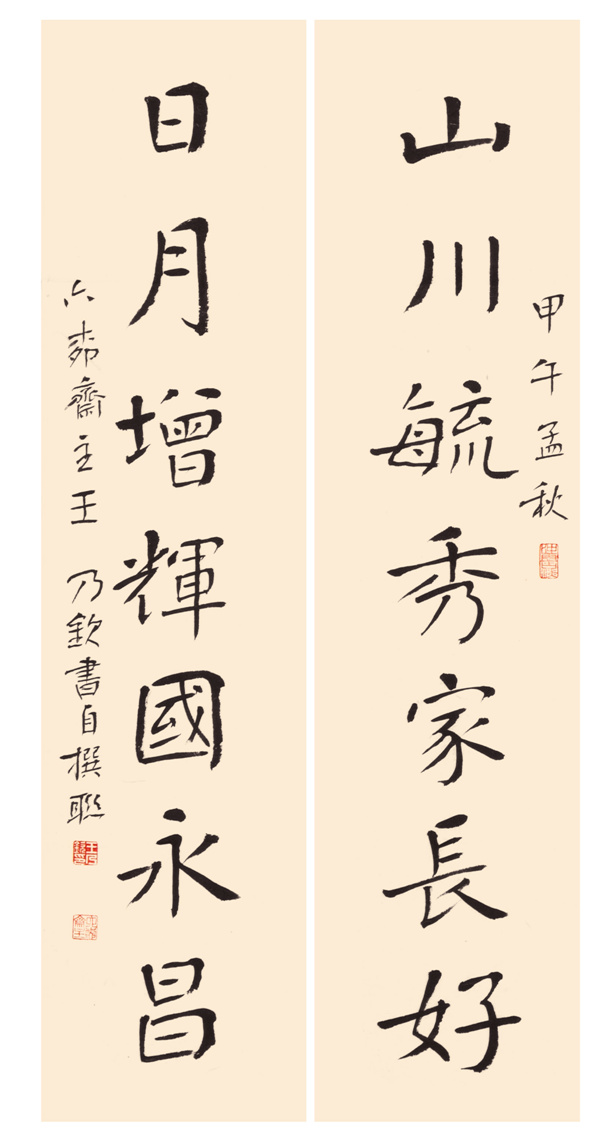 山川毓秀家長好
甲午孟秋
日月增輝國永昌
六茆齋主王乃欽書自撰聯